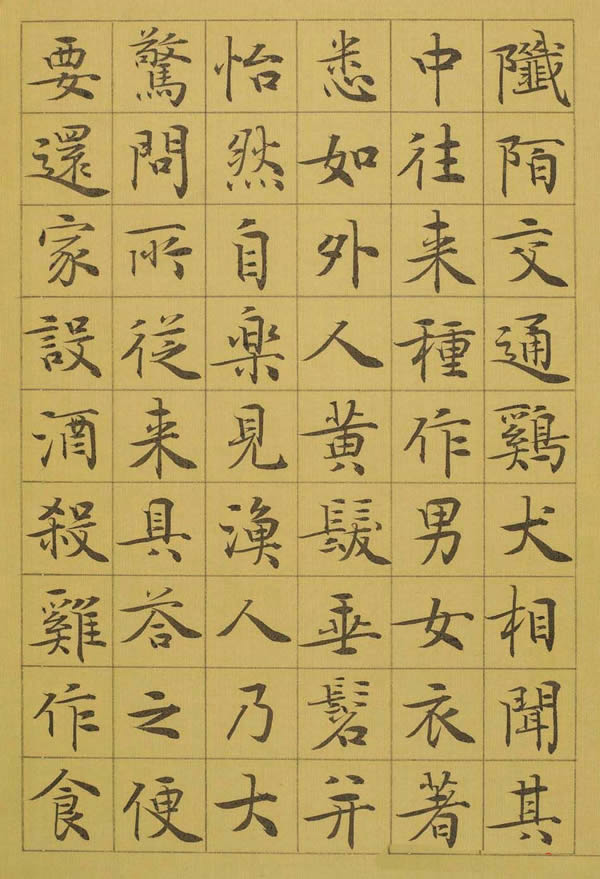 阡陌交通鷄犬相聞其
中往来種作男女衣著
悉如外人黄髮垂髫并
怡然自楽見漁人乃大
驚問所従来具答之便
要還家設酒殺雞作食